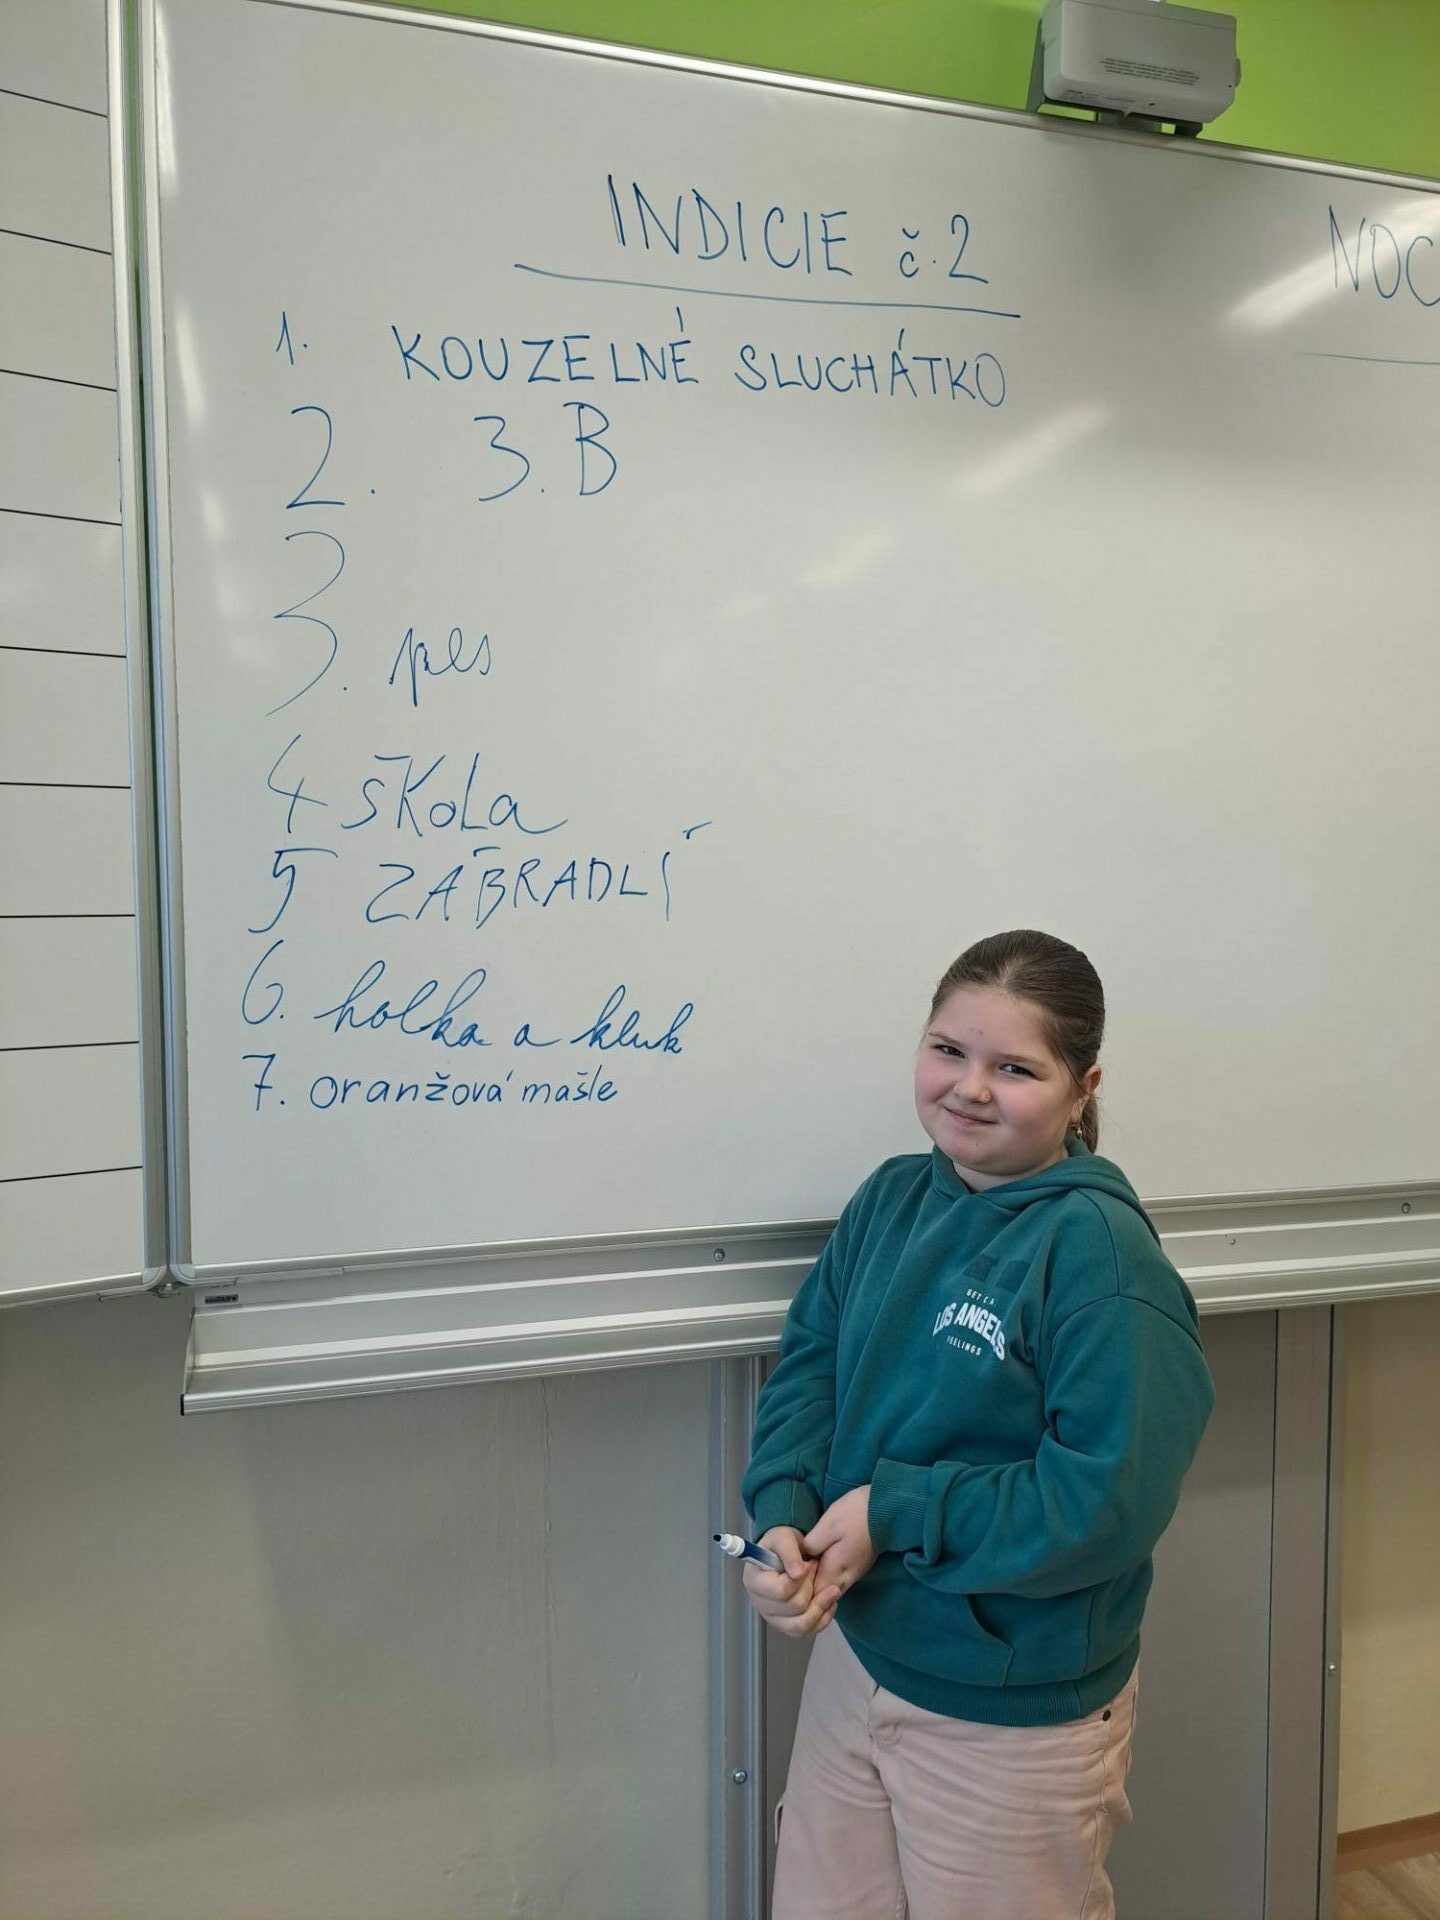 INDICIE č.2
NOC
1. KOUZELNÉ SLUCHÁTKO
2. 3.B
3. pes
4 škola
5 ZÁBRADLÍ
6. holka a kluk
7. oranžová mašle
GET L.A.
LOS ANGELES
FEELINGS